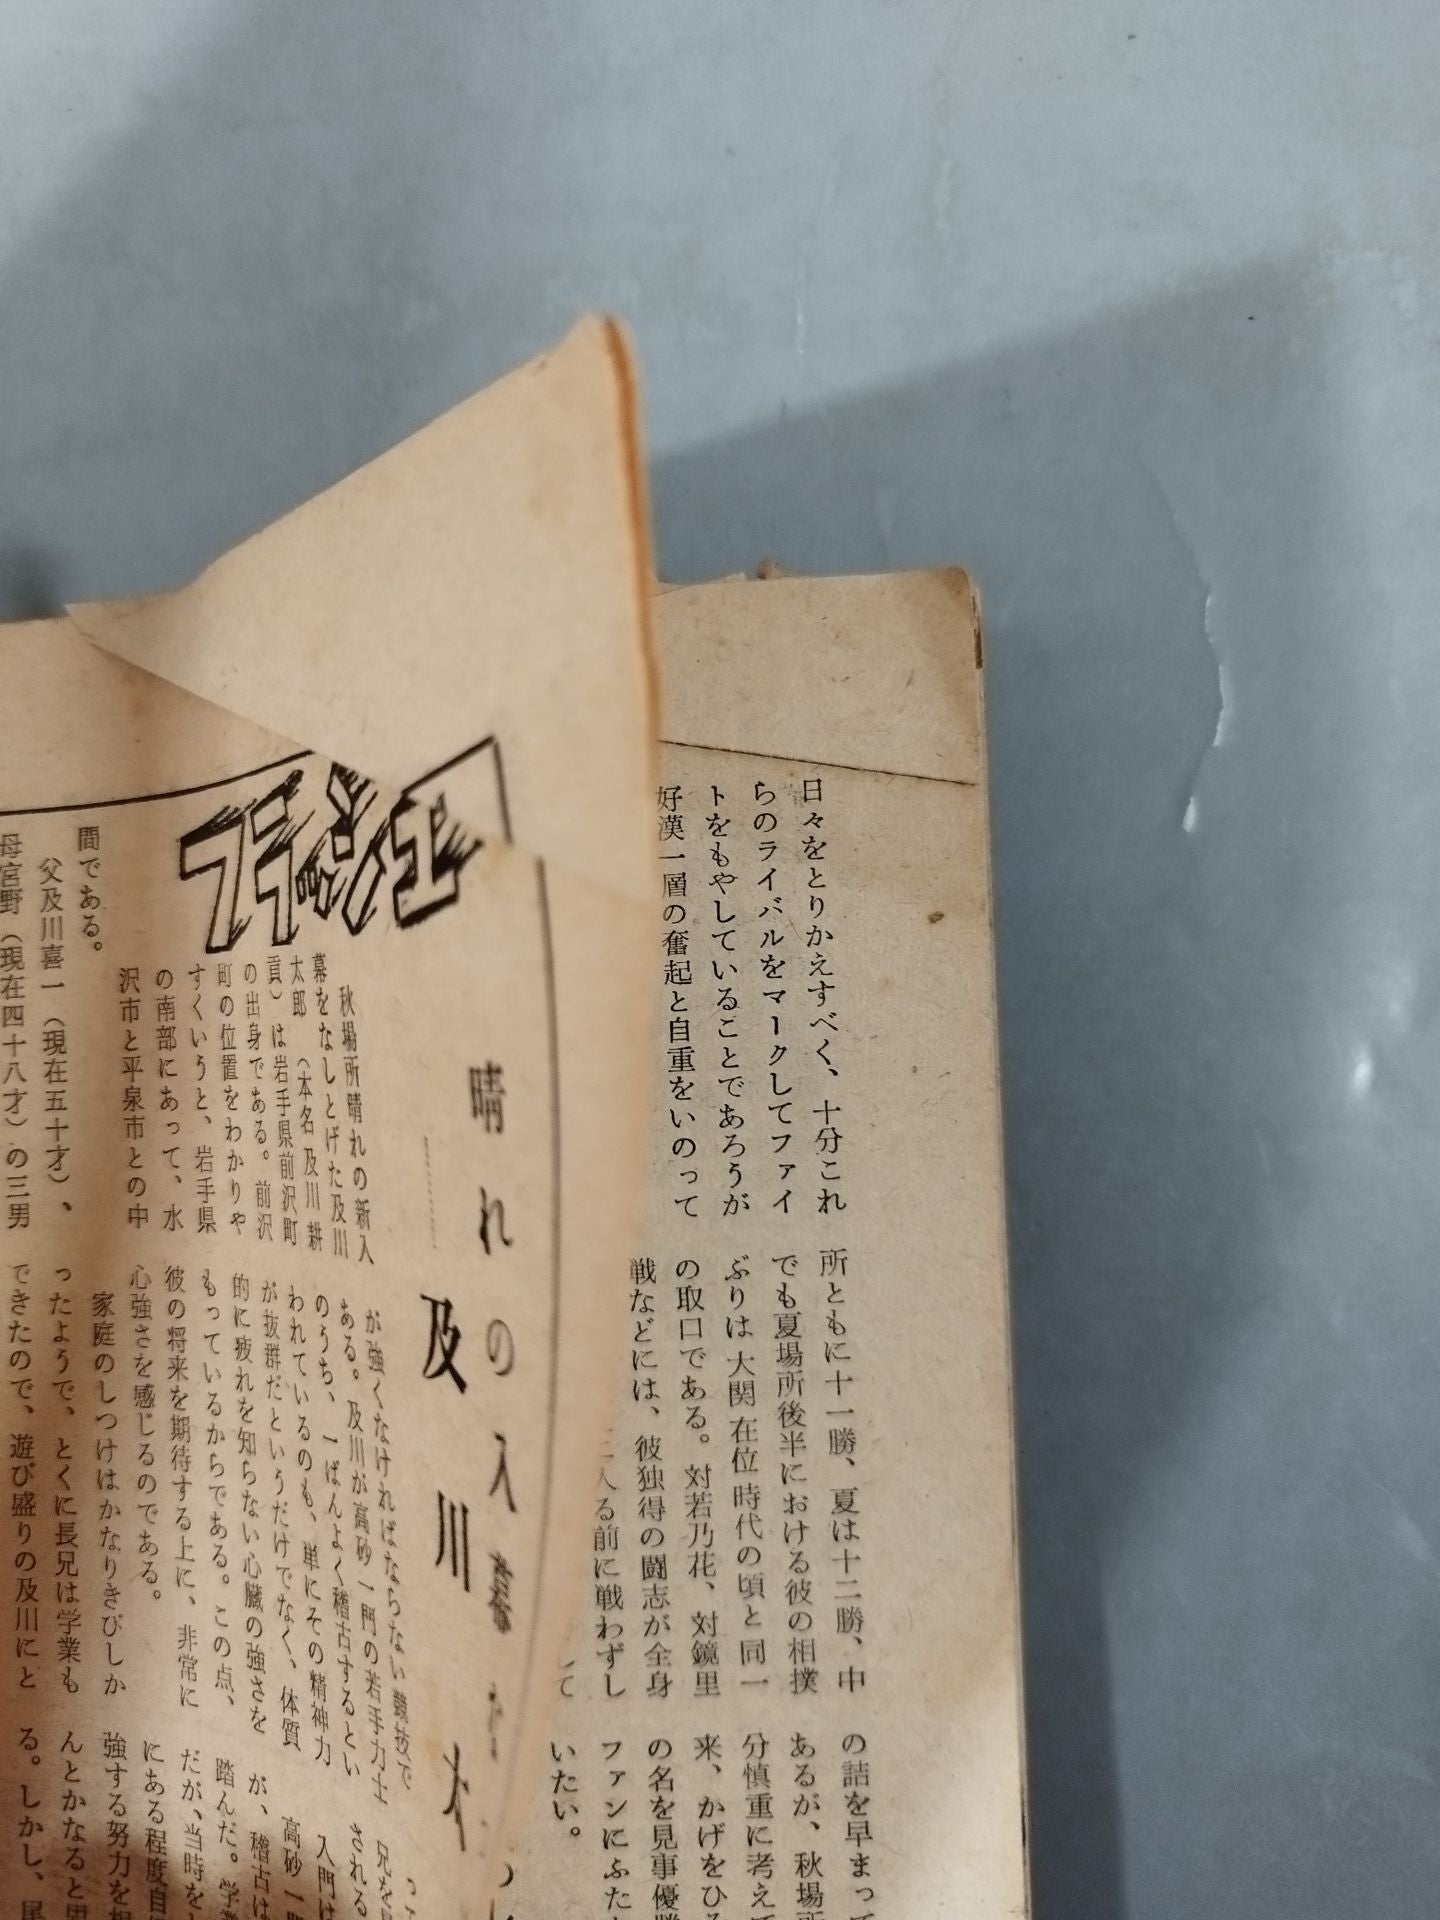 日々をとりかえすべく、十分これ
らのライバルをマークしてファイ
トをもやしていることであろうが
好漢一層の奮起と自重をいのって
所ともに十一勝、夏は十二勝、中
でも夏場所後半における彼の相撲
ぶりは大関在位時代の頃と同一
の取口である。対若乃花、対鏡里
戦などには、彼独得の闘志が全身
る前に戦わずし
て
の詰を早まって
あるが、秋場所
分慎重に考えて
来、かげをひそ
の名を見事優勝
ファンにふた
いたい。
晴れの入幕
及川
秋場所晴れの新入
幕をなしとげた及川
太郎（本名及川耕
貢）は岩手県前沢町
の出身である。前沢
町の位置をわかりや
すくいうと、岩手県
の南部にあって、水
沢市と平泉市との中
間である。
父及川喜一（現在五十才）、
母宮野（現在四十八才）の三男
が強くなければならない競技で
ある。及川が高砂一門の若手力士
のうち、一ばんよく稽古するとい
われているのも、単にその精神力
が抜群だというだけでなく、体質
的に疲れを知らない心臓の強さを
もっているからである。この点、
彼の将来を期待する上に、非常に
心強さを感じるのである。
家庭のしつけはかなりきびしか
ったようで、とくに長兄は学業も
できたので、遊び盛りの及川にと
される
入門は
高砂一
が、稽古は
踏んだ。学
だが、当時を
にある程度自
強する努力を
んとかなると思
る。しかし、尾